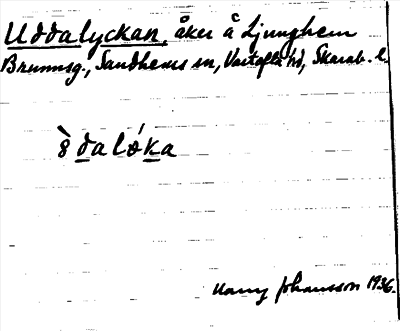 Uddalyckan, åker å Ljunghem
Brunnsg., Sandhems sn, Vartofta hd, Skarab. l.
8̀ daló̵ka
Harry Johansson 1936.